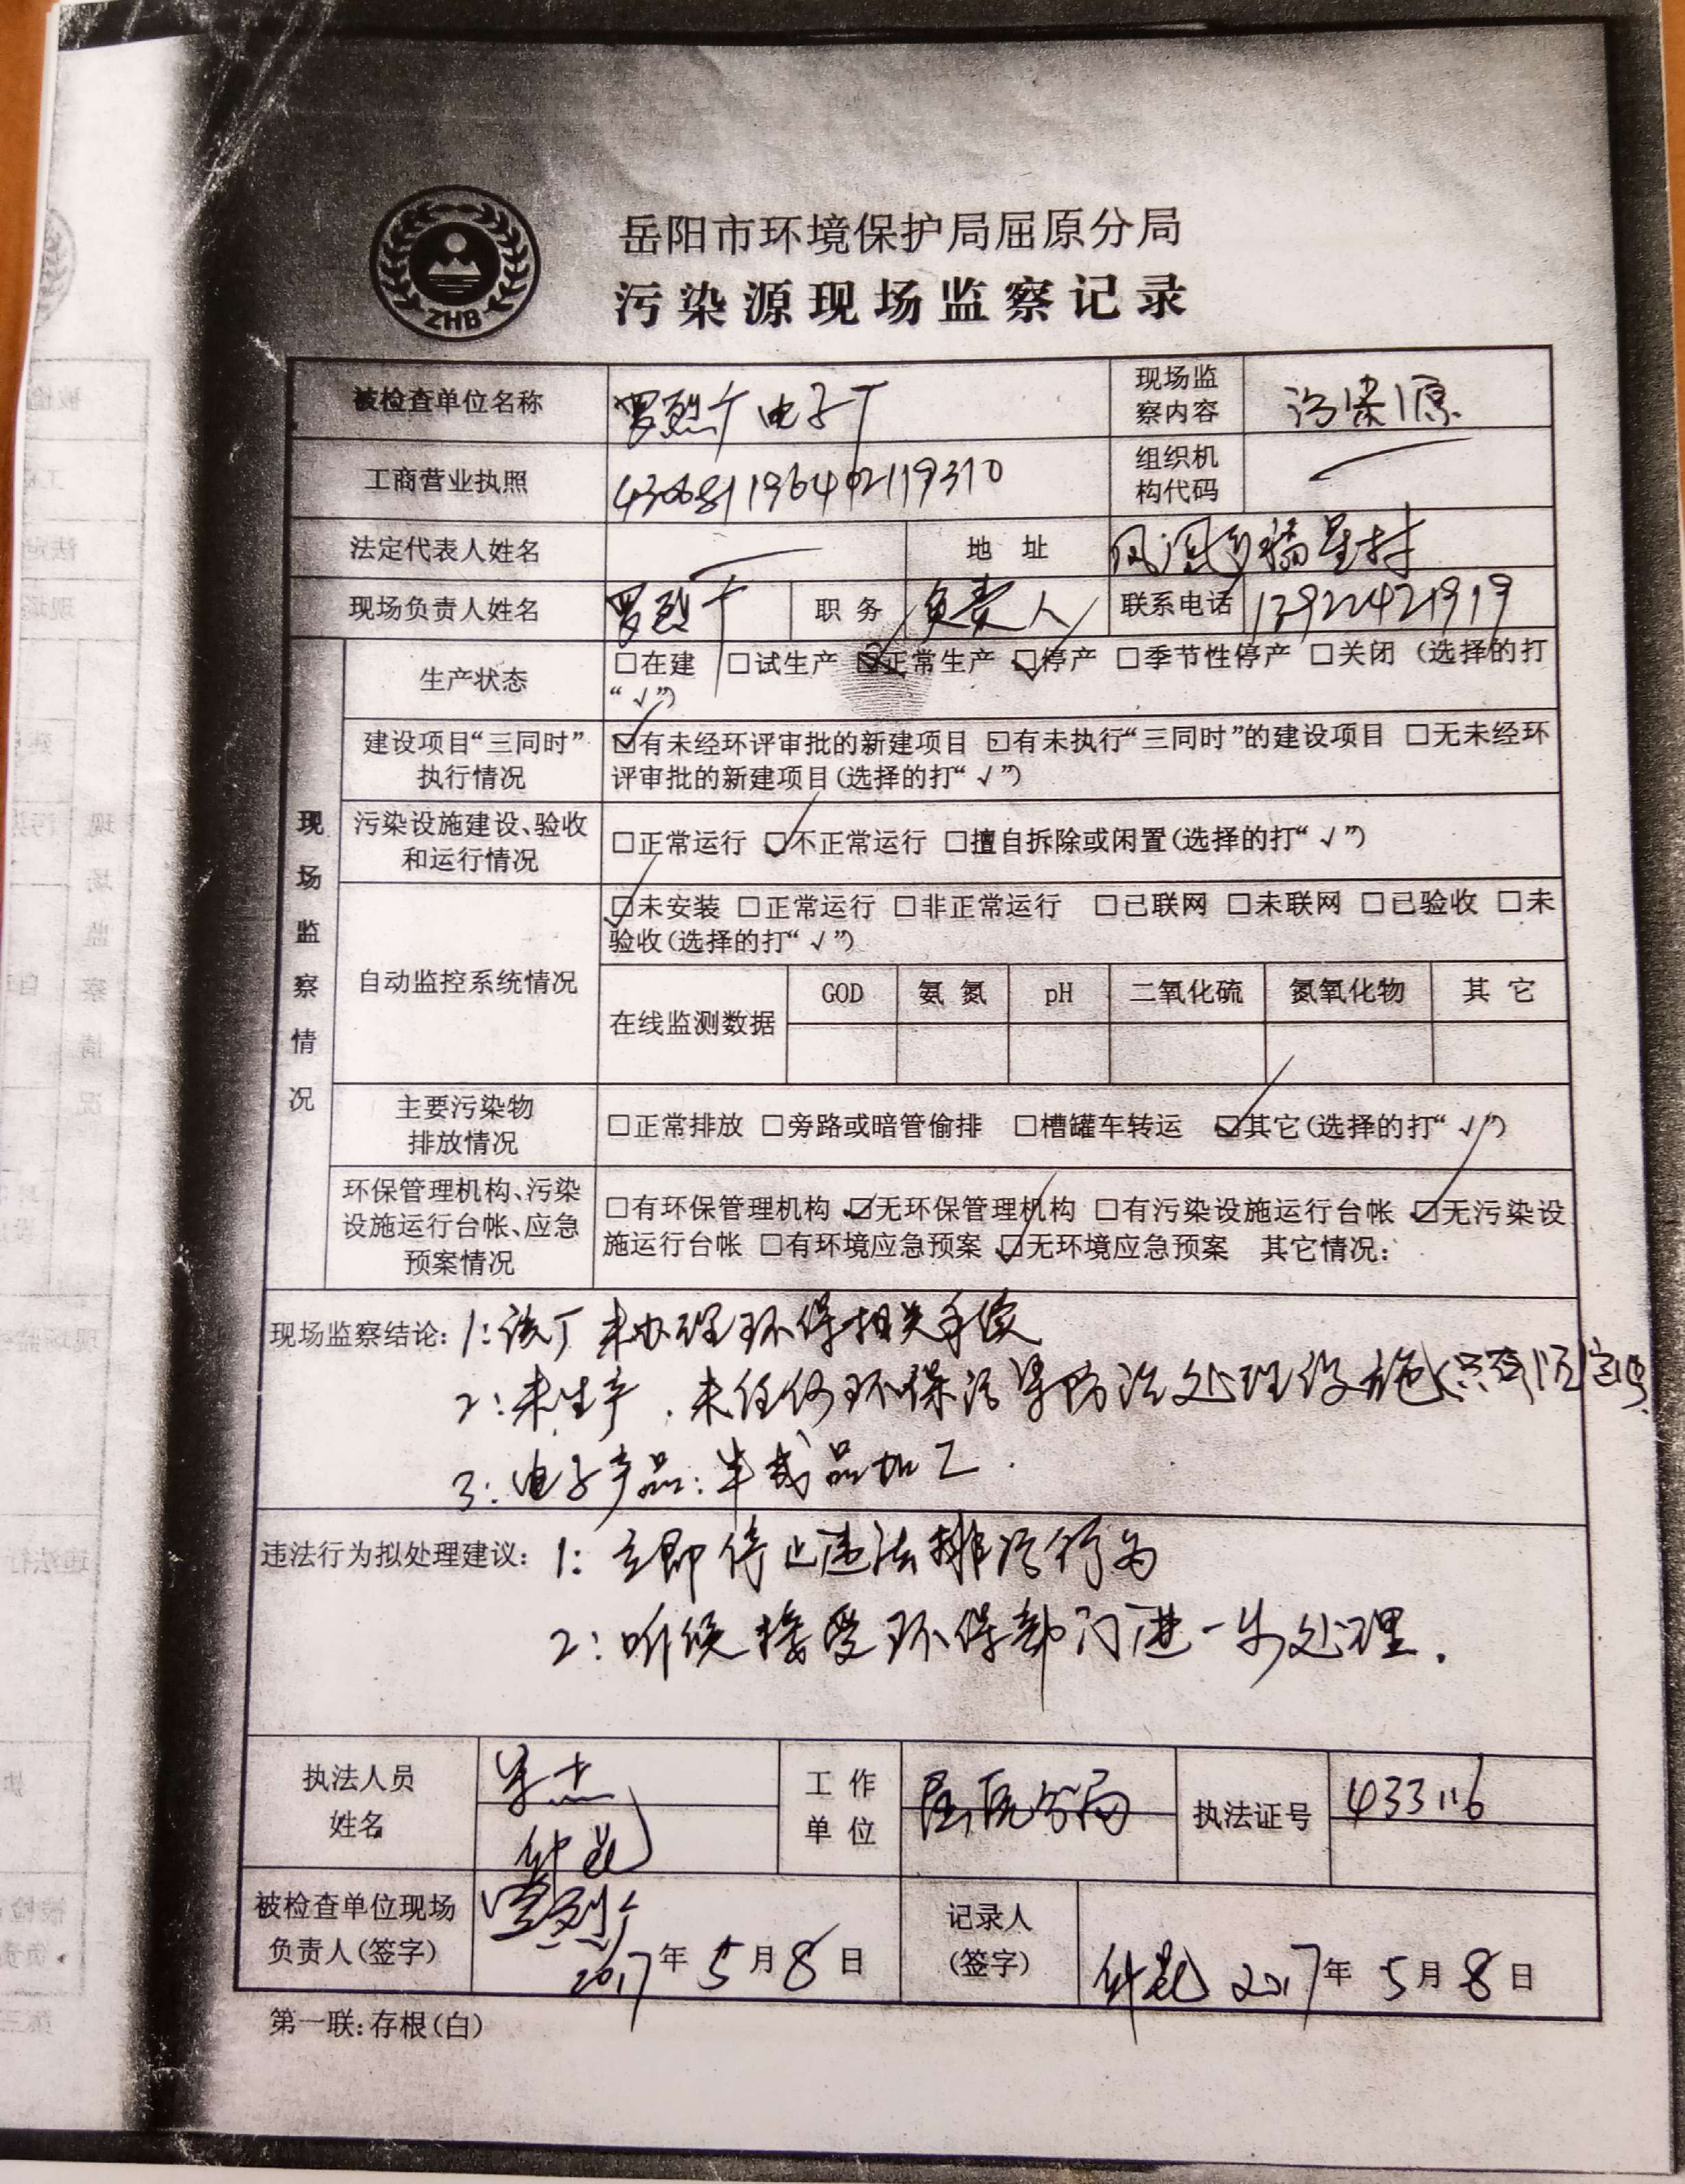 ZHB
岳阳市环境保护局屈原分局
污染源现场监察记录
被检查单位名称 罗烈千电子厂 现场监察内容 污染源
工商营业执照 组织机构代码
法定代表人姓名 地址 凤凰乡 星村
现场负责人姓名 罗烈千 职务 负责人 联系电话 13922421919
现场监察情况
生产状态 □在建 □试生产 ☑正常生产 ☑停产 □季节性停产 □关闭 (选择的打
“√”)
建设项目“三同时”执行情况 ☑有未经环评审批的新建项目 ☑有未执行“三同时”的建设项目 □无未经环
评审批的新建项目(选择的打“√”)
污染设施建设、验收和运行情况 □正常运行 ☑不正常运行 □擅自拆除或闲置(选择的打“√”)
自动监控系统情况 ☑未安装 □正常运行 □非正常运行 □已联网 □未联网 □已验收 □未
验收(选择的打“√”)
在线监测数据 GOD 氨氮 pH 二氧化硫 氮氧化物 其它
主要污染物排放情况 □正常排放 □旁路或暗管偷排 □槽罐车转运 ☑其它(选择的打“√”)
环保管理机构、污染设施运行台帐、应急预案情况 □有环保管理机构 ☑无环保管理机构 □有污染设施运行台帐 ☑无污染设
施运行台帐 □有环境应急预案 ☑无环境应急预案 其它情况:
现场监察结论: 1: 该厂未办理环保相关手续
2: 未生产. 未任何环保污染防治处理设施
3: 电子产品: 半成品加工.
违法行为拟处理建议: 1: 立即停止违法排污行为
2: 听候接受环保部门进一步处理.
执法人员姓名 工作单位 屈原分局 执法证号 433116
被检查单位现场负责人(签字) 罗烈千 2017年5月8日
记录人(签字) 2017年5月8日
第一联:存根(白)